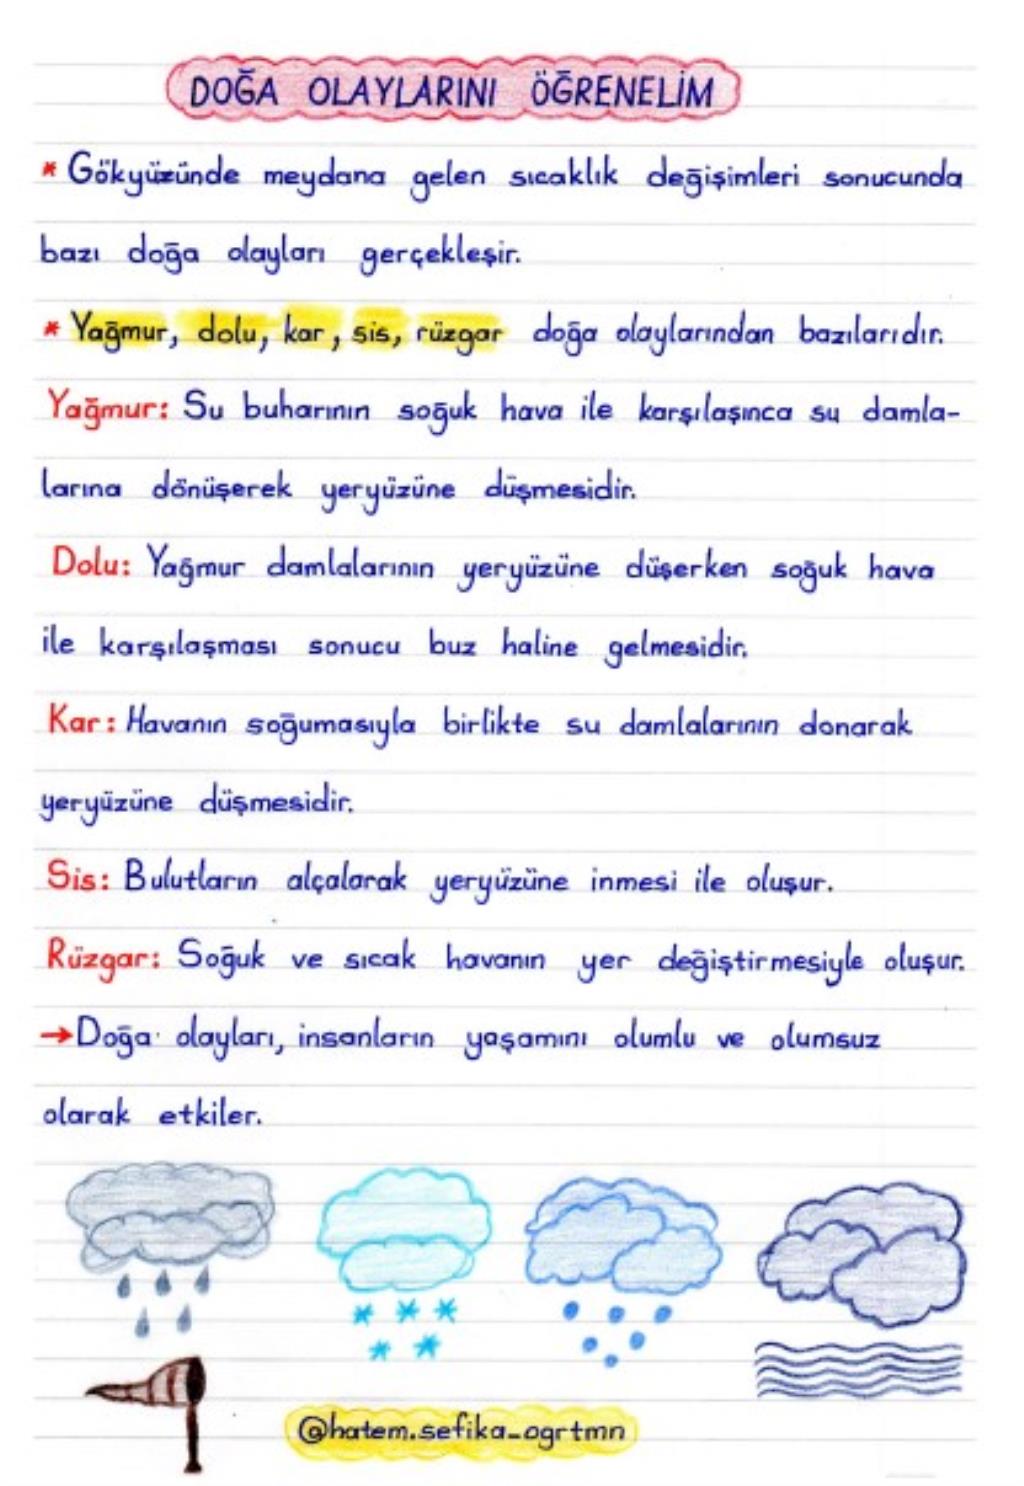 DOĞA OLAYLARINI ÖĞRENELİM
* Gökyüzünde meydana gelen sıcaklık değişimleri sonucunda
bazı doğa olayları gerçekleşir.
* Yağmur, dolu, kar, sis, rüzgar doğa olaylarından bazılarıdır.
Yağmur: Su buharının soğuk hava ile karşılaşınca su damla-
larına dönüşerek yeryüzüne düşmesidir.
Dolu: Yağmur damlalarının yeryüzüne düşerken soğuk hava
ile karşılaşması sonucu buz haline gelmesidir.
Kar: Havanın soğumasıyla birlikte su damlalarının donarak
yeryüzüne düşmesidir.
Sis: Bulutların alçalarak yeryüzüne inmesi ile oluşur.
Rüzgar: Soğuk ve sıcak havanın yer değiştirmesiyle oluşur.
→ Doğa olayları, insanların yaşamını olumlu ve olumsuz
olarak etkiler.
@hatem.sefika_ogrtmn